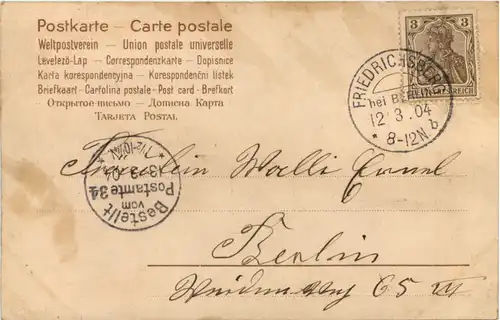 Postkarte — Carte postale
Weltpostverein — Union postale universelle
Levelező-Lap — Correspondenzkarte — Dopisnice
Karta korespondencyjna — Korespondenční lístek
Briefkaart — Cartolina postale — Post card — Brefkort
Открытое письмо — Дописна Карта
TARJETA POSTAL
3 3
REICH
FRIEDRICHSBERG
bei
12.3.04
* 8-12N b
Bestellt
vom
Postamte 34
Fräulein Walli
Berlin
65 III